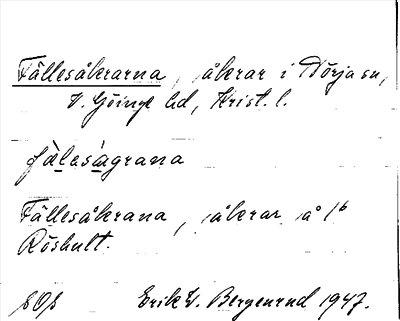 Fällesåkrarna, åkrar i Nörja sn,
V. Göinge hd, Krist. l.
fä̀lesågrana
Fällesåkrana, åkrar å 1/6
Röshult.
Erik W. Bergenrud 1947.